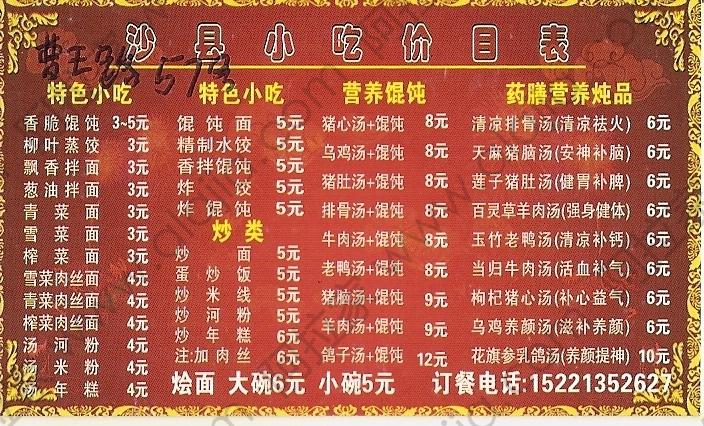 沙县小吃价目表
曹王路57号
特色小吃
香脆馄饨 3~5元
柳叶蒸饺 3元
飘香拌面 3元
葱油拌面 3元
青菜面 3元
雪菜面 3元
榨菜面 3元
雪菜肉丝面 4元
青菜肉丝面 4元
榨菜肉丝面 4元
汤河粉 4元
汤米粉 4元
汤年糕 4元
特色小吃
馄饨面 5元
精制水饺 5元
香拌馄饨 5元
炸饺 5元
炸馄饨 5元
炒类
炒面 5元
蛋炒饭 5元
炒米线 5元
炒河粉 5元
炒年糕 6元
注:加肉丝 6元
营养馄饨
猪心汤+馄饨 8元
乌鸡汤+馄饨 8元
猪肚汤+馄饨 8元
排骨汤+馄饨 8元
牛肉汤+馄饨 8元
老鸭汤+馄饨 8元
猪脑汤+馄饨 9元
羊肉汤+馄饨 9元
鸽子汤+馄饨 12元
药膳营养炖品
清凉排骨汤(清凉祛火) 6元
天麻猪脑汤(安神补脑) 6元
莲子猪肚汤(健胃补脾) 6元
百灵草羊肉汤(强身健体) 6元
玉竹老鸭汤(清凉补钙) 6元
当归牛肉汤(活血补气) 6元
枸杞猪心汤(补心益气) 6元
乌鸡养颜汤(滋补养颜) 6元
花旗参乳鸽汤(养颜提神) 10元
烩面 大碗6元 小碗5元 订餐电话:15221352627